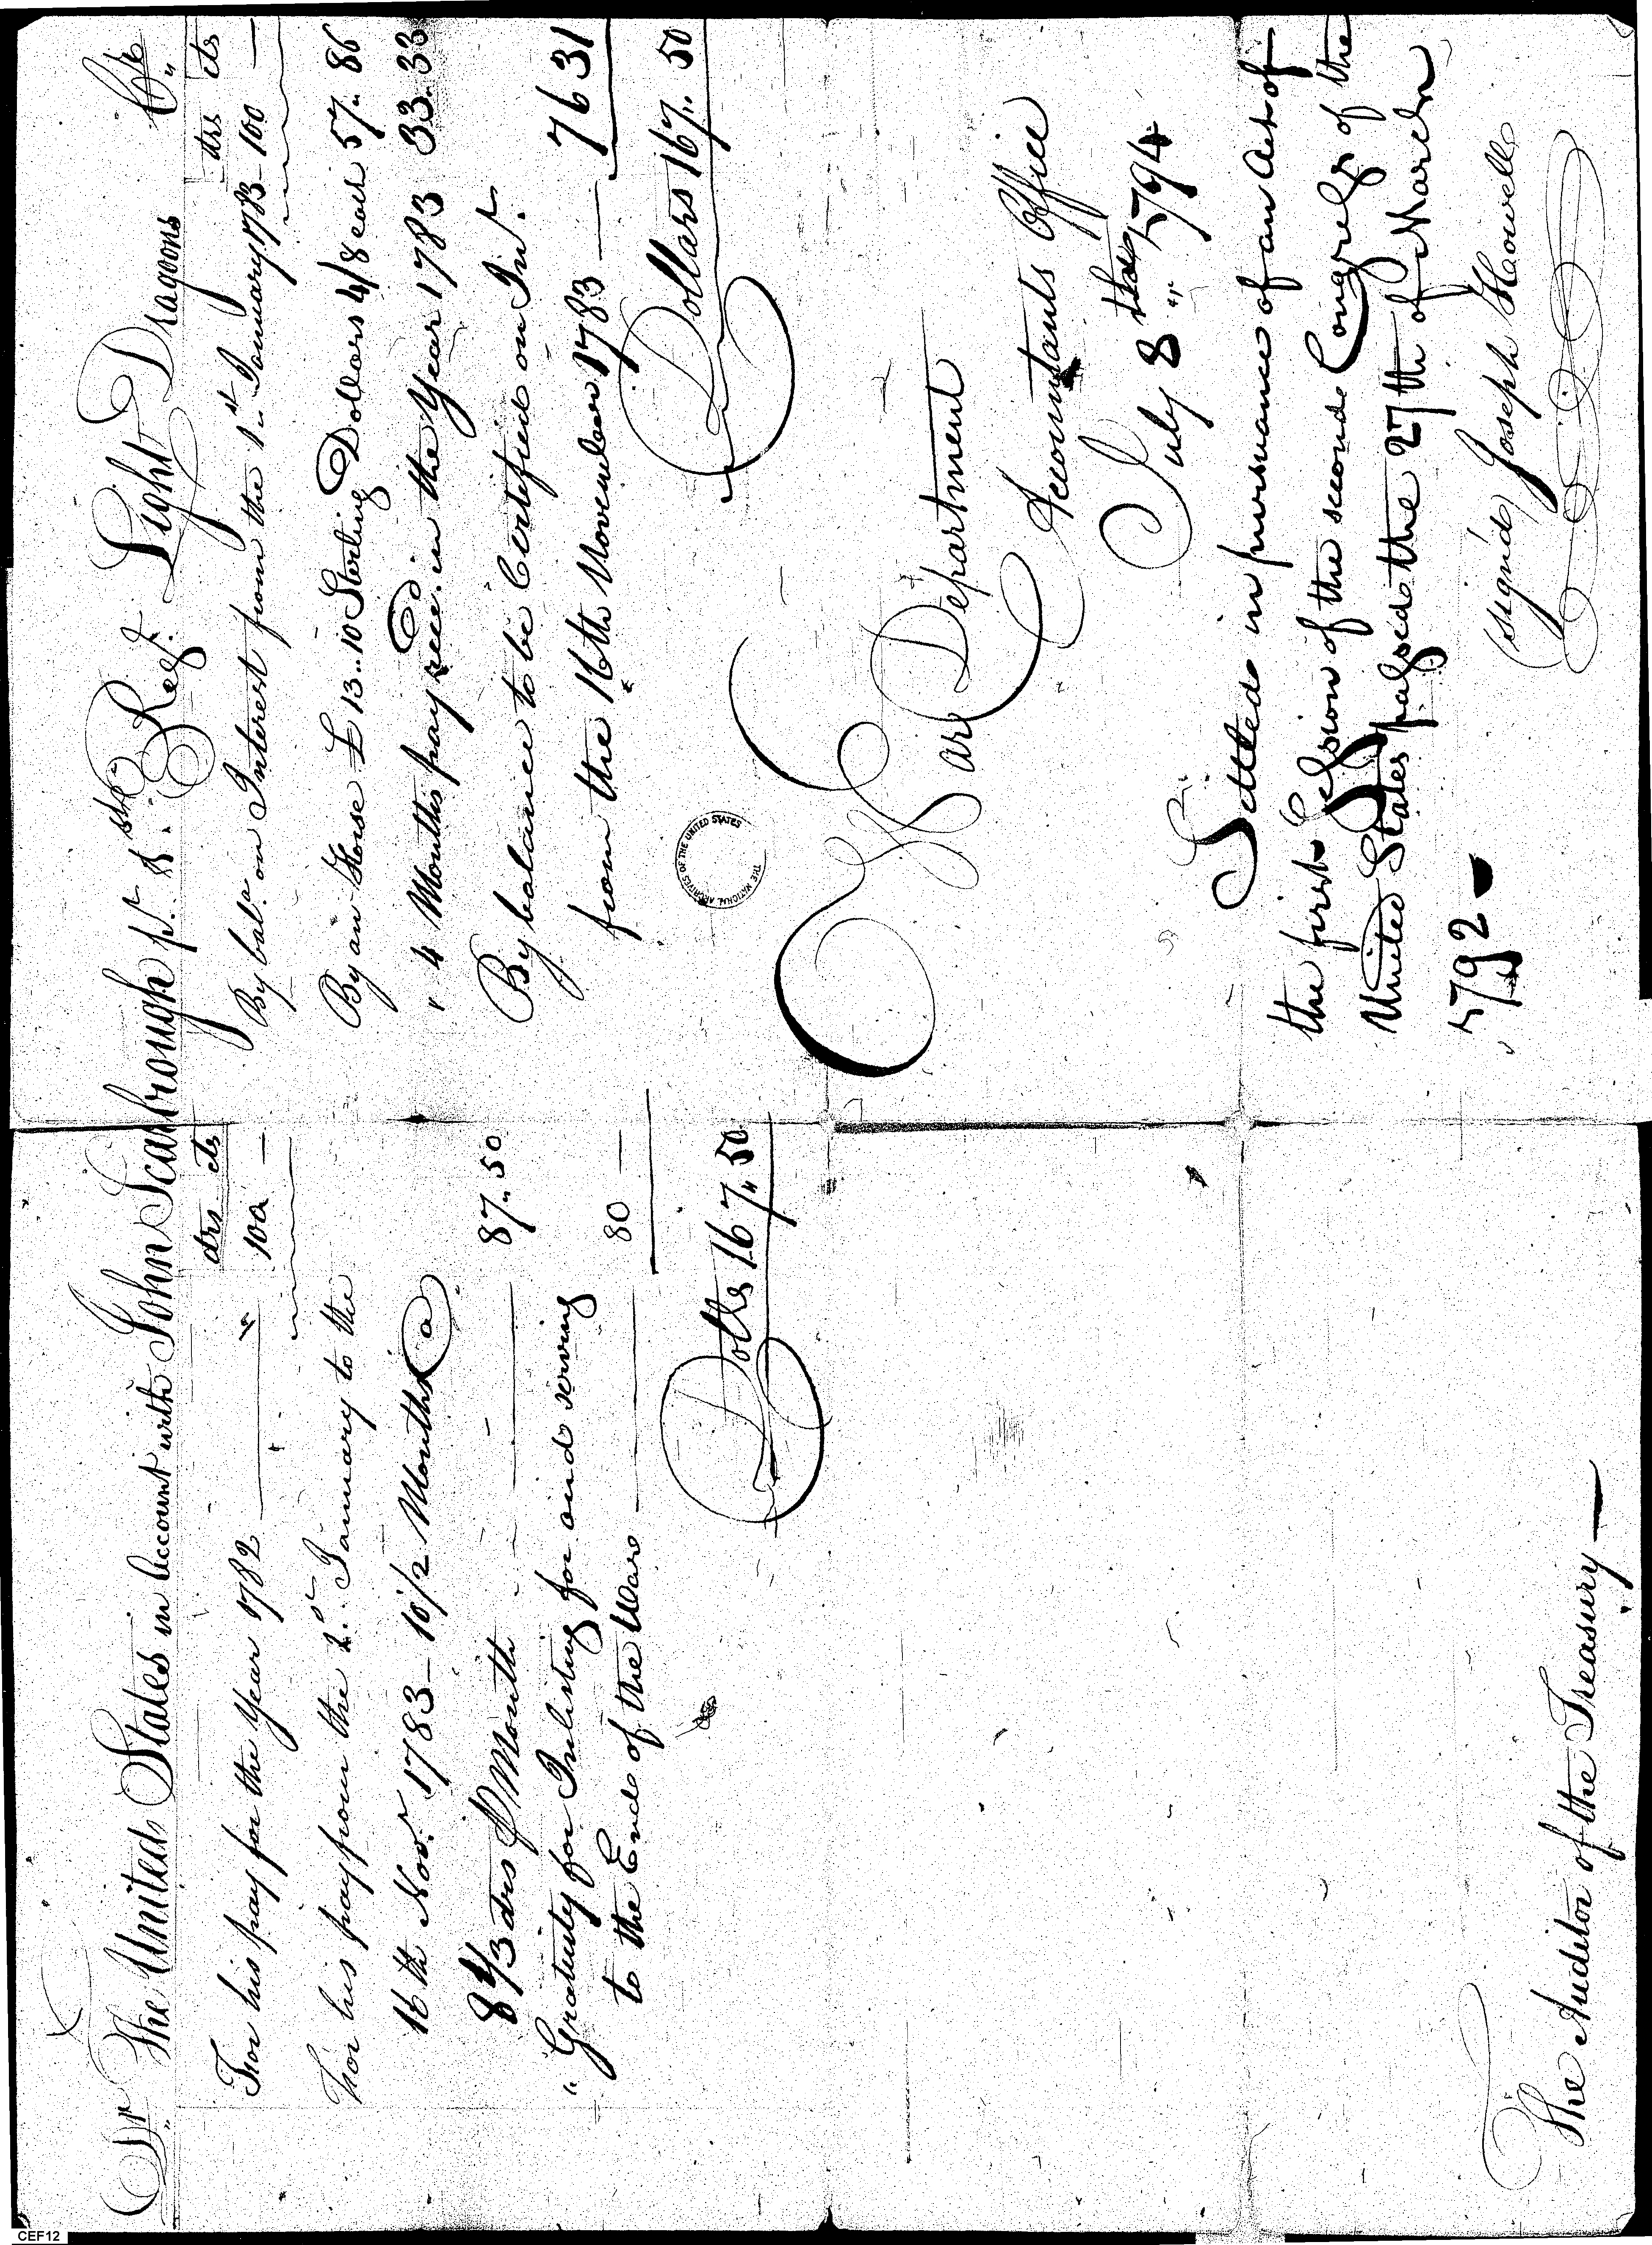 Dr The United States in Account with John Scarbrough pt. 1st Regt. Light Dragoons Cr
drs cts
For his pay for the Year 1782 100 —
For his pay from the 1st January to the
16th Novr 1783 - 10 1/2 Months @
8 1/3 drs P Month 87.. 50
" Gratuity for Inlisting for and serving
to the End of the War 80 —
Dolls 167.. 50
drs cts
By bal. on Interest from the 1st January 1783 - 100 —
By an Horse £ 13..10 Sterling Dollars 4/8 each 57.. 86
" 4 Months pay recd in the Year 1783 33.. 33
By balance to be Certified on Int.
from the 16th November 1783 — 76 31
Dollars 167.. 50
THE NATIONAL ARCHIVES OF THE UNITED STATES
War Department
Accountants Office
July 8th 1794
Settled in pursuance of an Act of
the first Session of the second Congress of the
United States passed the 27th of March
1792 -
(signed) Joseph Howell
The Auditor of the Treasury —
CEF12